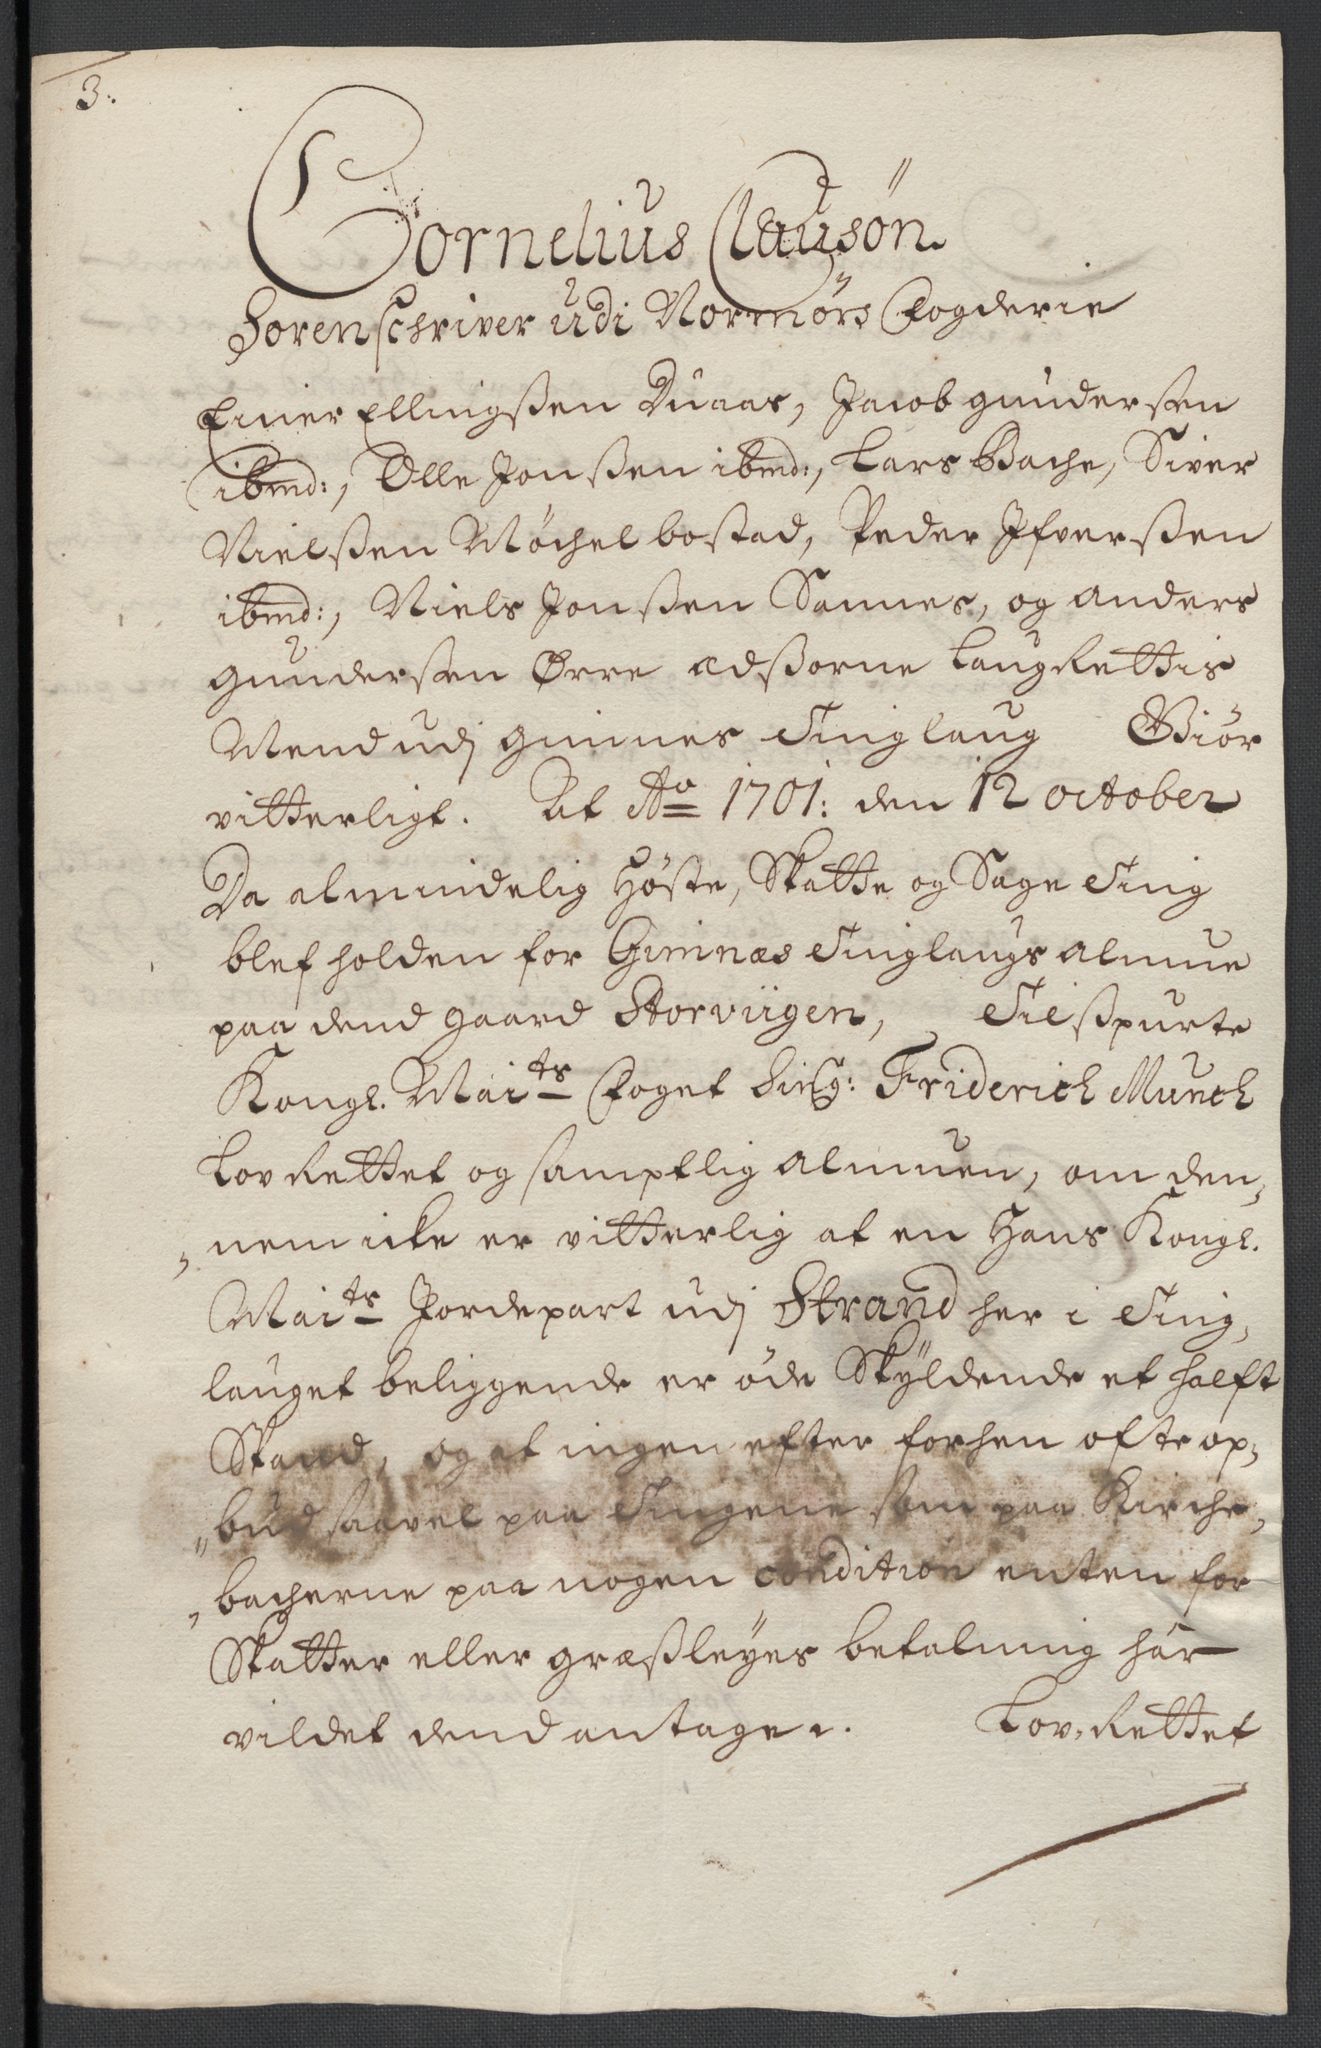 3.
Cornelius Clausön
Sorenschriver udi Normörs Fogderie
Einer Ellingsßen Duaas, Jacob gundersen
ibmd:, Olle Jonßen ibmd:, Lars Bache, Siver
Nielßen Möchelbostad, Peder Ifverßen
ibmd:, Niels Jonßen Sannes, og anders
gundersen Ørre Edßorne LaugRettis
Mend udj gimnes Tinglaug Giör
vitterligt. At Ao 1701: den 12 october
Da almindelig Höste, Skatte og Sage Ting
blef holden for Gimnæs Tinglaugs almue
paa dend gaard Storviigen, Tilßpurte
Kongl. Maits Foget Sing: Friderich Munch
LovRettet og samptlig almuen, om den,
,nem icke er vitterlig at en Hans Kongl.
Maits Jordepart udj Strand her i Ting,
lauget beliggende er öde Skÿldende et halft
Spand, og at ingen efter forhen ofte op,
,,bud saavel paa Tingene som paa Kirche,
,bacherne paa nogen condition enten for
Skatter eller græßleÿes betalning har
vildet dend antage. LovRettet